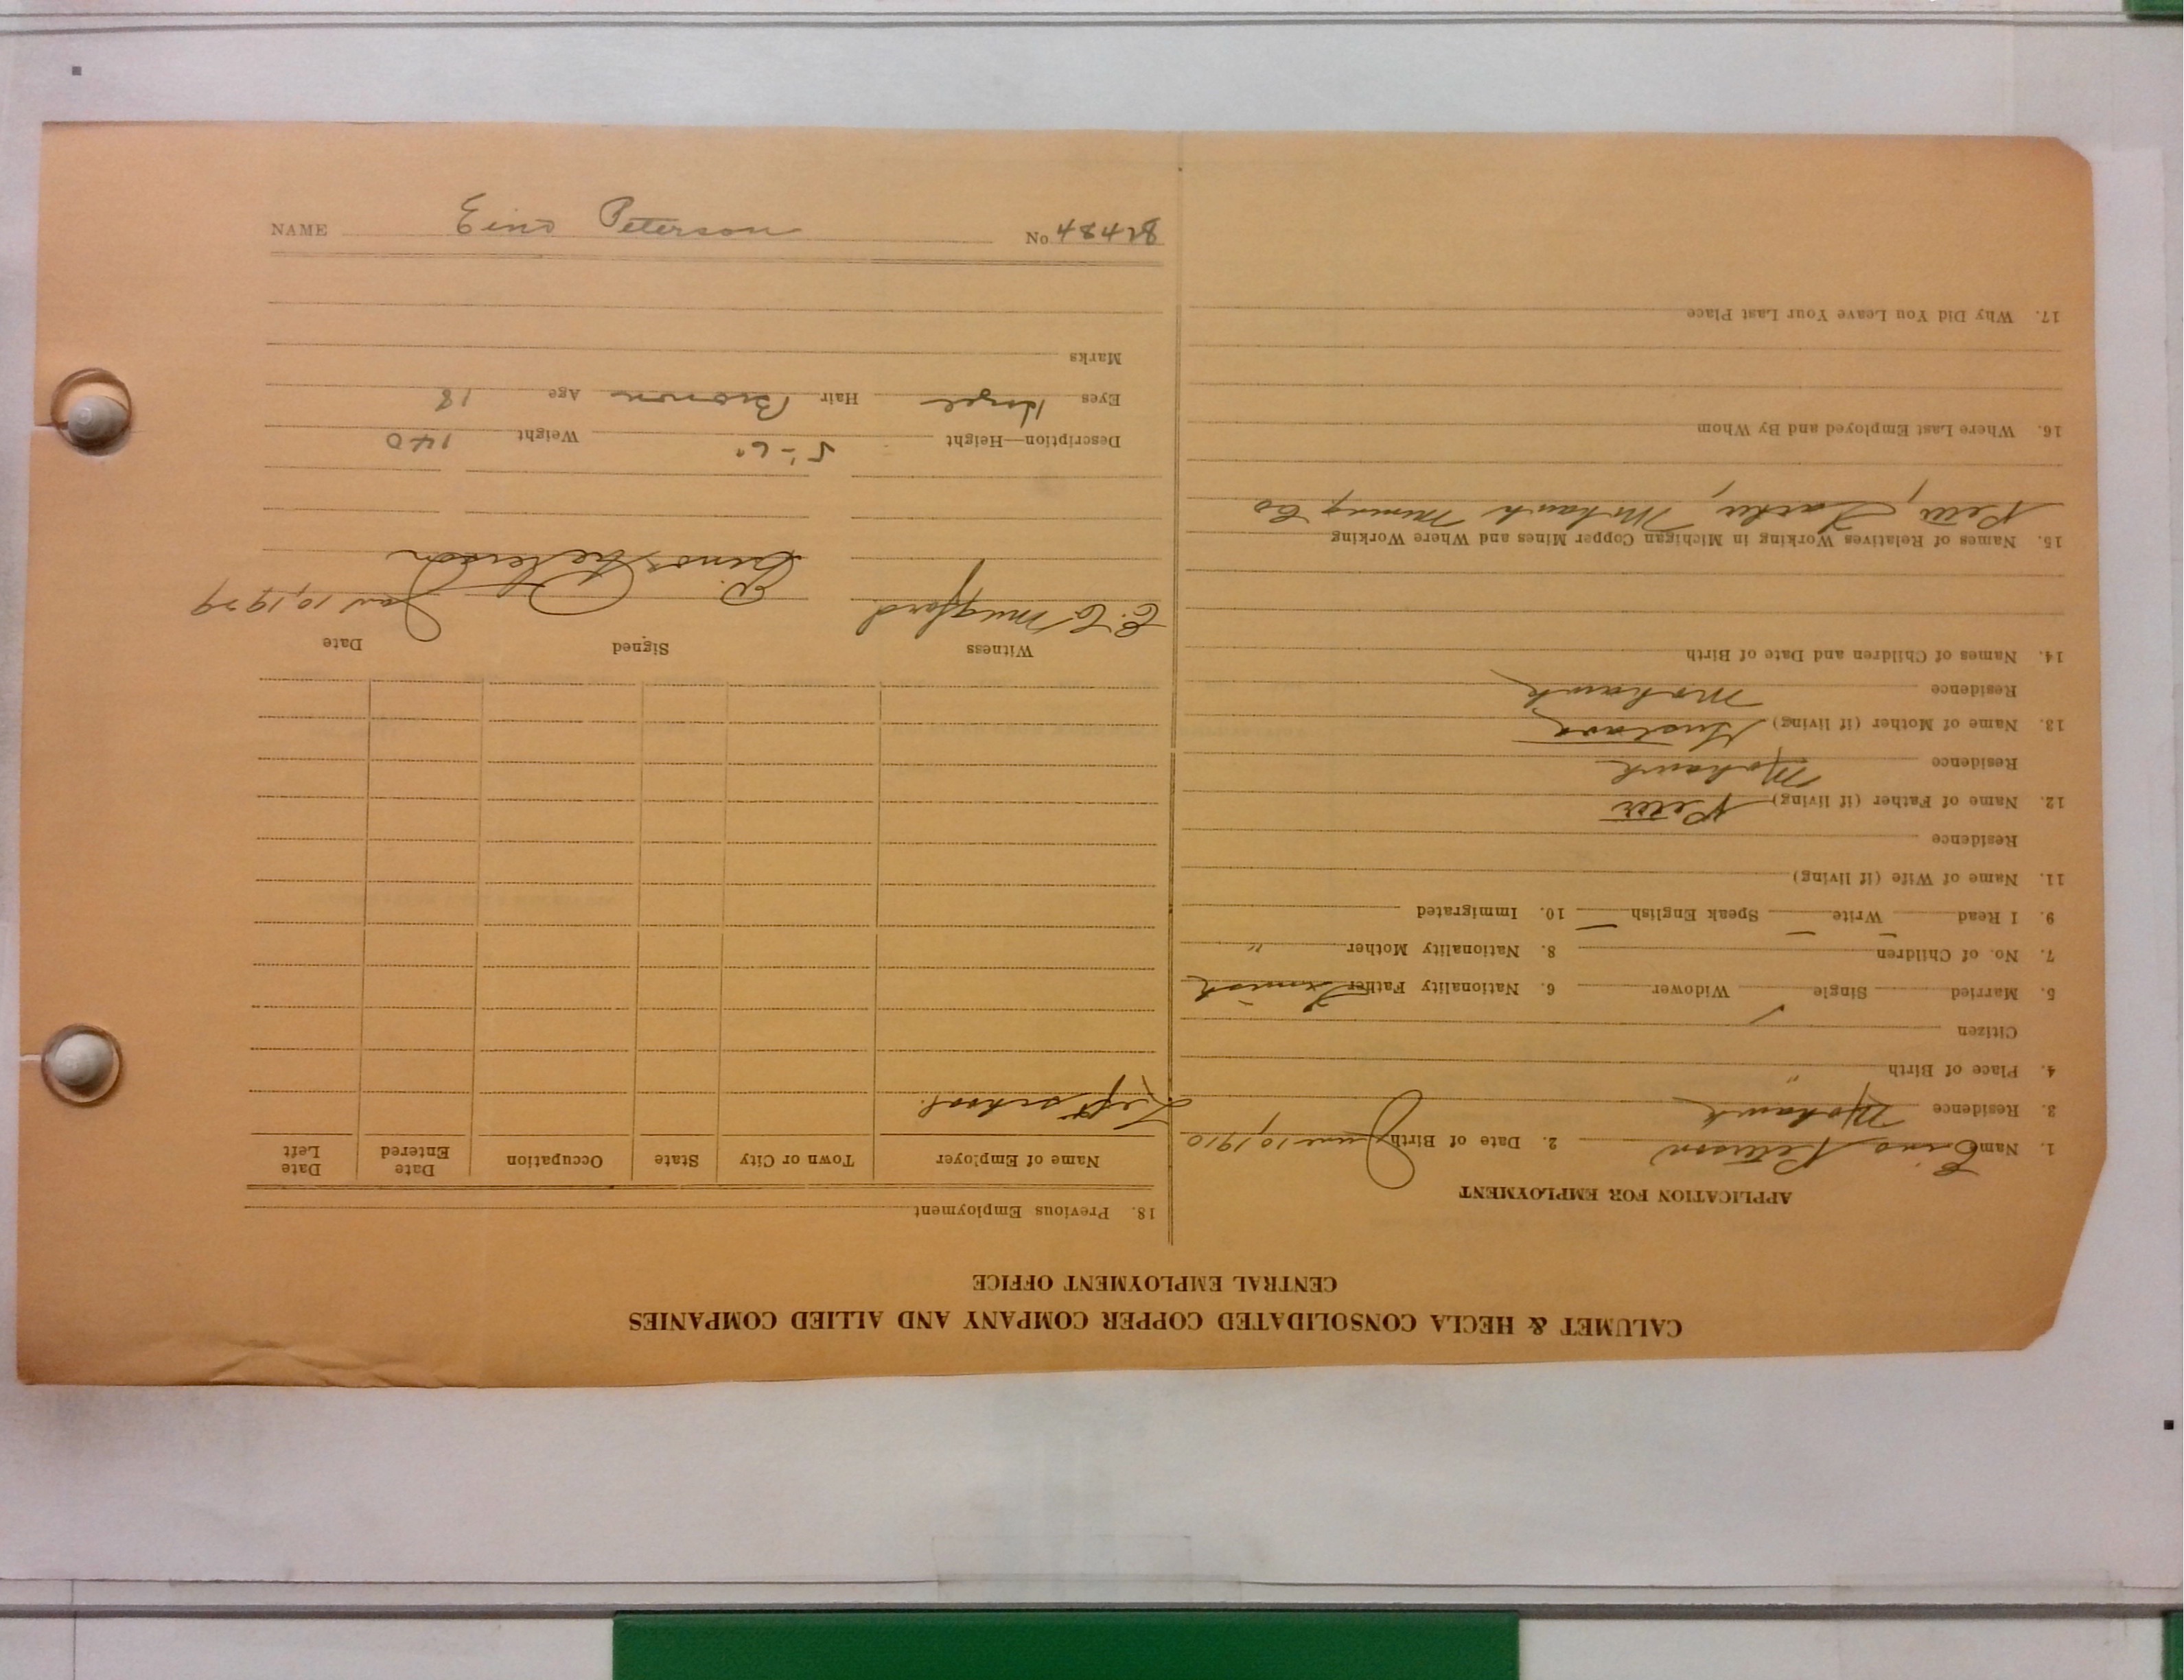 CALUMET & HECLA CONSOLIDATED COPPER COMPANY AND ALLIED COMPANIES
CENTRAL EMPLOYMENT OFFICE
APPLICATION FOR EMPLOYMENT
1. Name Eino Peterson 2. Date of Birth June 10, 1910
3. Residence Mohawk
4. Place of Birth "
Citizen
5. Married Single ✓ Widower 6. Nationality Father Finnish
7. No. of Children 8. Nationality Mother "
9. I Read — Write — Speak English — 10. Immigrated
11. Name of Wife (if living)
Residence
12. Name of Father (if living) Peter
Residence Mohawk
13. Name of Mother (if living) Gustava
Residence Mohawk
14. Names of Children and Date of Birth
15. Names of Relatives Working in Michigan Copper Mines and Where Working
Peter, Father, Mohawk Mining Co
16. Where Last Employed and By Whom
17. Why Did You Leave Your Last Place
18. Previous Employment
Name of Employer Town or City State Occupation Date Entered Date Left
Left school.
Witness Signed Date
E. C. Mugford Eino Peterson Jan 10, 1929
Eino Peterson
Description—Height 5'-6" Weight 140
Eyes Hazel Hair Brown Age 18
Marks
NAME Eino Peterson No 48428